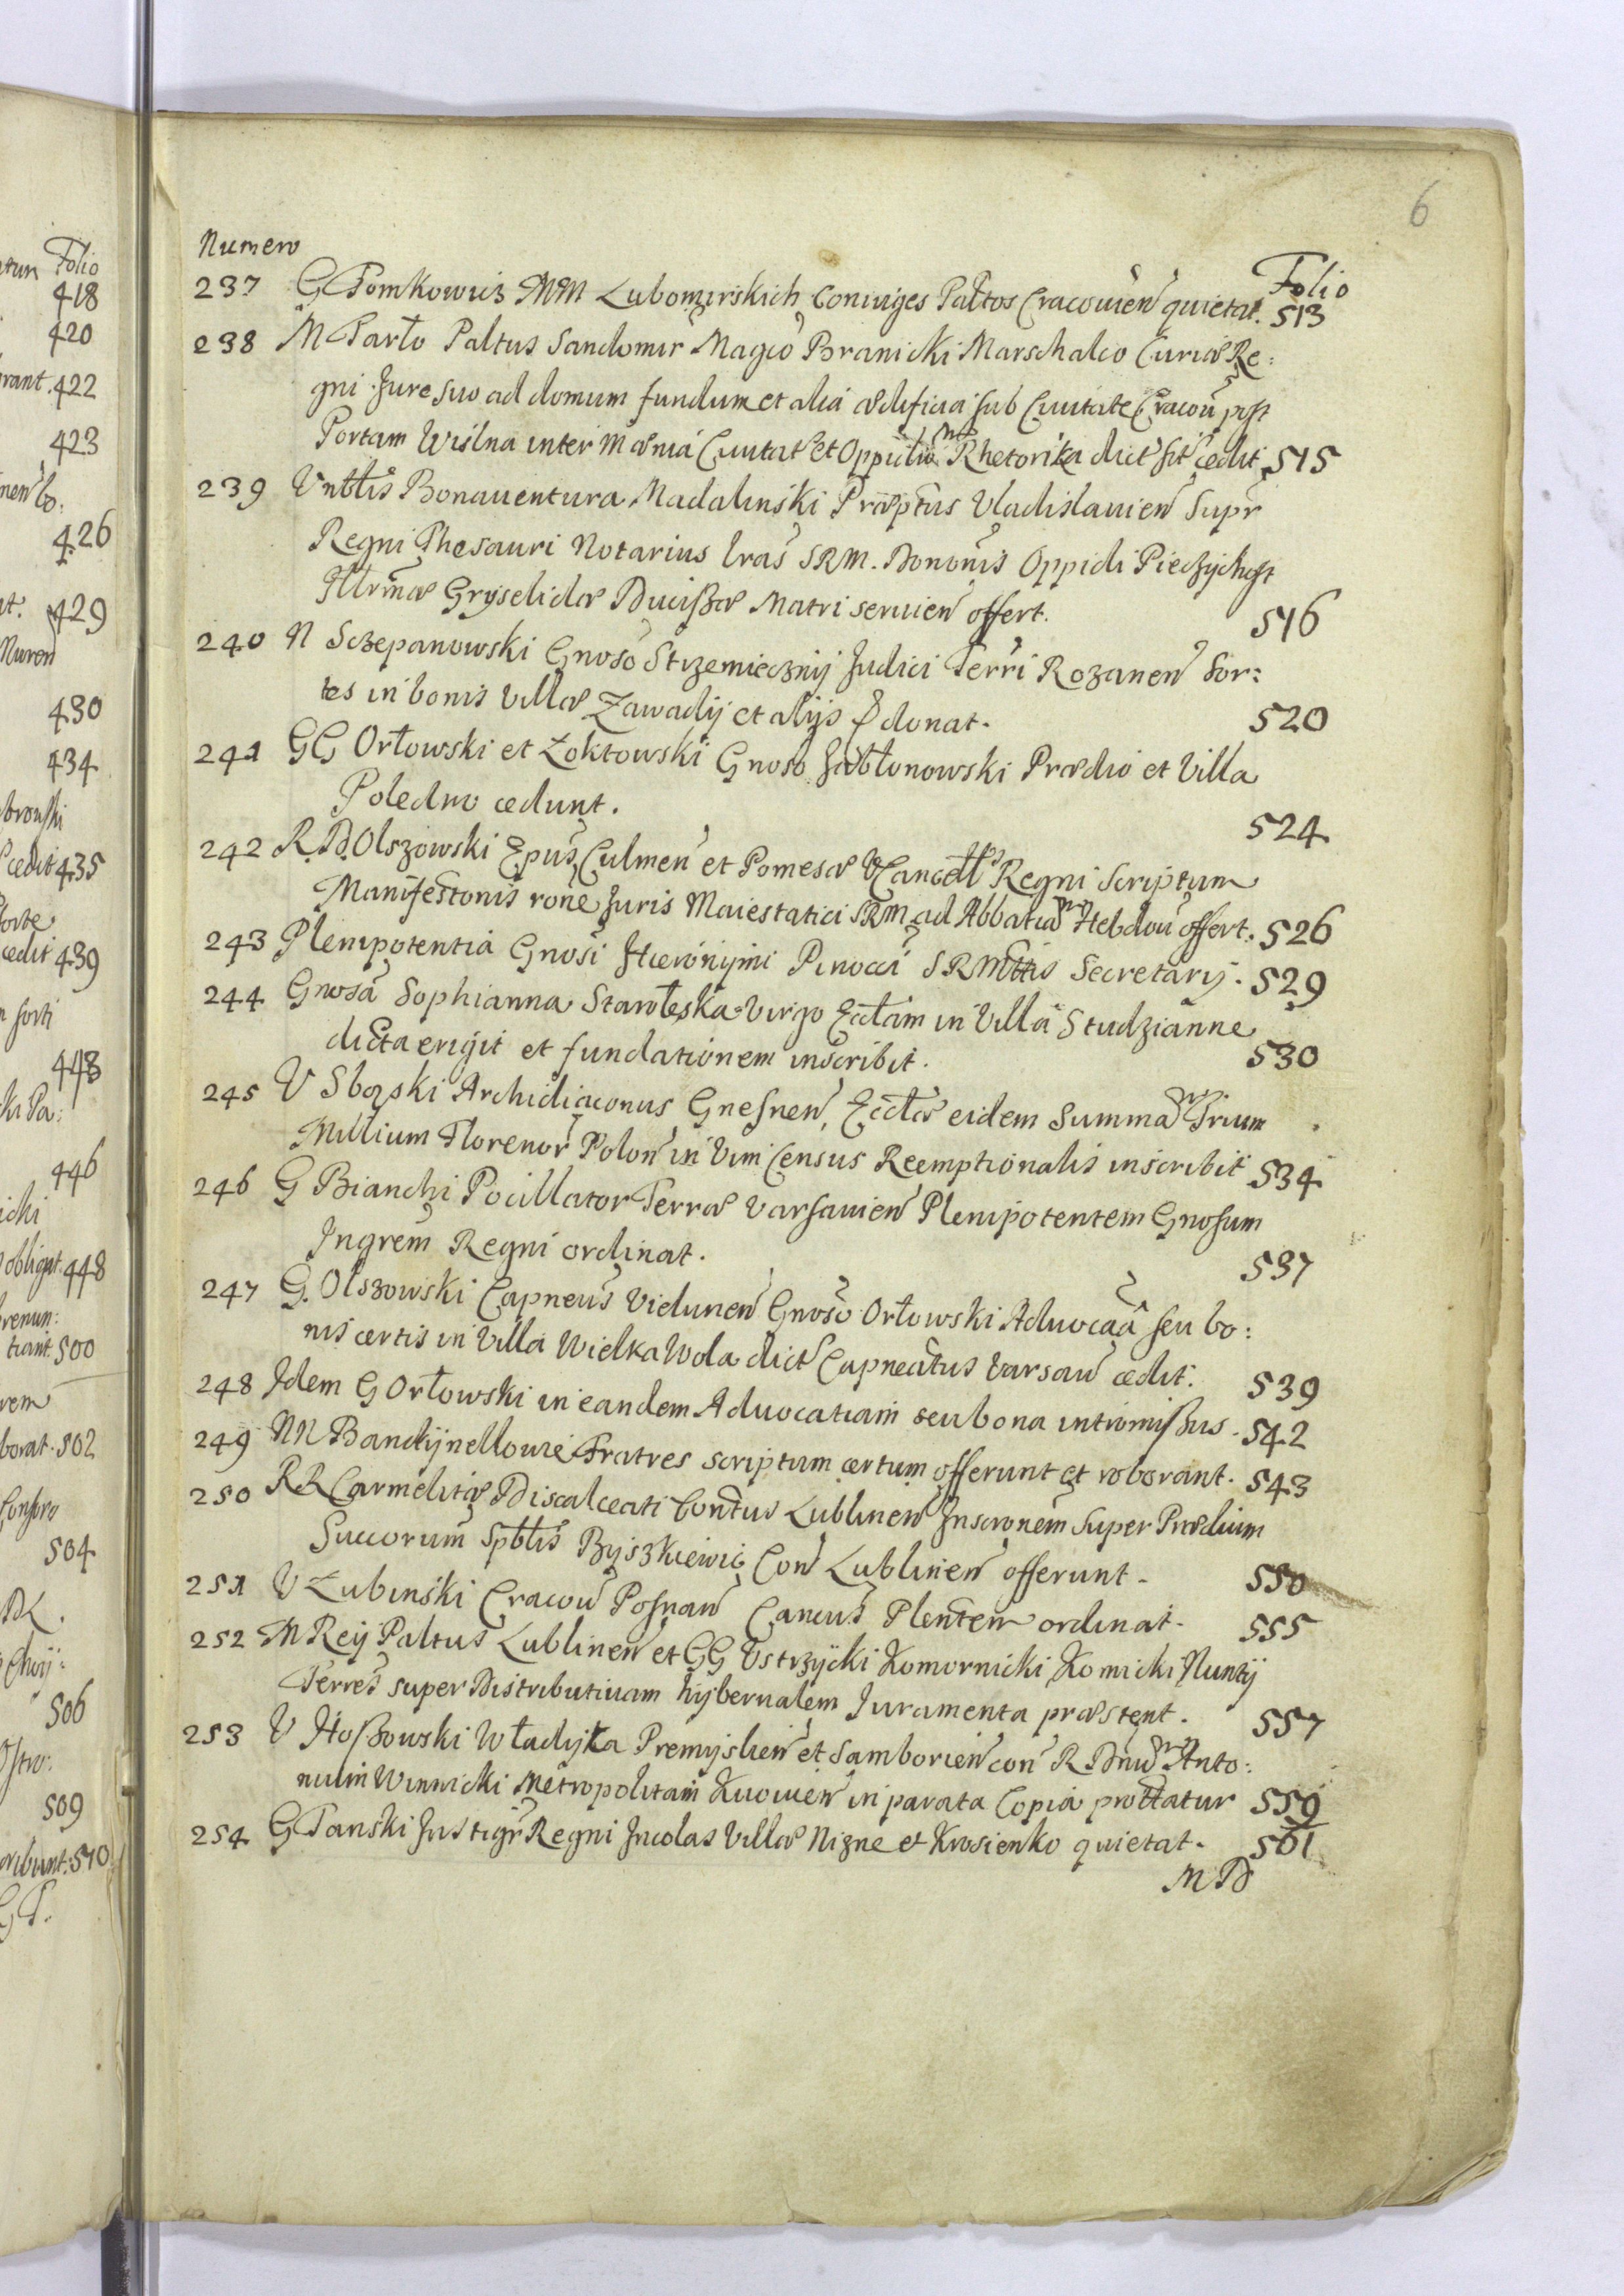 6
Numero
Folio
237 G Tomkowicz MM Lubomirskich Coniuges Paltos Cracouien quietat. 513
238 M Tarło Paltus Sandomir Magco Branicki Marschalco Curiæ Re:
gni Jure suo ad domum fundum et alia ædificia sub Ciuitate Cracou post
Portam Wiślna inter Mænia Ciuitat et Oppidu Rhetorika dict sit cedit 515
239 Vnblis Bonauentura Madalinski Præptus Vladislauien Supr
Regni Thesauri Notarius lras SRM. Bononis Oppidi
Illrmæ Gryseldæ Ducißæ Matri seruien offert. 516
240 N Sczepanowski Gnoso Strzemiecznij Judici Terri Rozanen Sor:
tes in bonis Villæ Zawadij et alijs donat. 520
241 GG Orłowski et Zoktowski Gnoso Jabłonowski Prædio et Villa
Poledno cedunt. 524
242 R.D. Olszowski Epus Culmen et Pomesa VCancell Regni Scriptum
Manifestonis rone Juris Maiestatici SRM ad Abbatia Hebdou offert. 526
243 Plenipotentia Gnosi Hieronymi Pinocci SRMttis Secretarij. 529
244 Gnosa Sophianna Staroleska Virgo Ecclam in Villa Studzianne
dicta erigit et fundationem inscribit. 530
245 V Sbąski Archidiaconus Gnesnen, Ecclæ eidem Summa Trium
Millium Florenor Polon in Vim Census Reemptionalis inscribit 534
246 G Bianchi Pocillator Terræ Varsauien Plenipotentem Gnosum
Ingrem Regni ordinat. 537
247 G. Olszowski Capneus Vielunen Gnoso Orłowski Aduocaa seu bo:
nis certis in Villa Wielka Wola dict Capneatus Varsau cedit. 539
248 Idem G Orłowski in eandem Aduocatiam seu bona intromißus. 542
249 NN Bandijnellowie Fratres scriptum certum offerunt et roborant. 543
250 RR Carmelitæ Discalceati Contus Lublinen Inscronem super Prædium
Succorum Spblis Byszkiewic Con Lublinen offerunt. 550
251 V Łubinski Cracou Posnan Cancus Plentem ordinat. 555
252 M Reij Paltus Lublinen et GG Vstrzycki Komornicki Komicki Nuntij
Terres super Distributiuam hijbernalem Juramenta præstent. 557
253 V Hoßowski Władyka Premyslien et Samborien con R Dnu Anto:
nium Winnicki Metropolitam Kiiouien in parata Copia prottatur 559
254 G Tanski Instigr Regni Incolas Villæ Nizne et Krosienko quietat. 561
MD
Folio
418
420
rant. 422
423
426
429
430
434
cedit 435
cedit 439
448
446
obligat. 448
renun:
tiant. 500
borat. 502
504
506
509
510